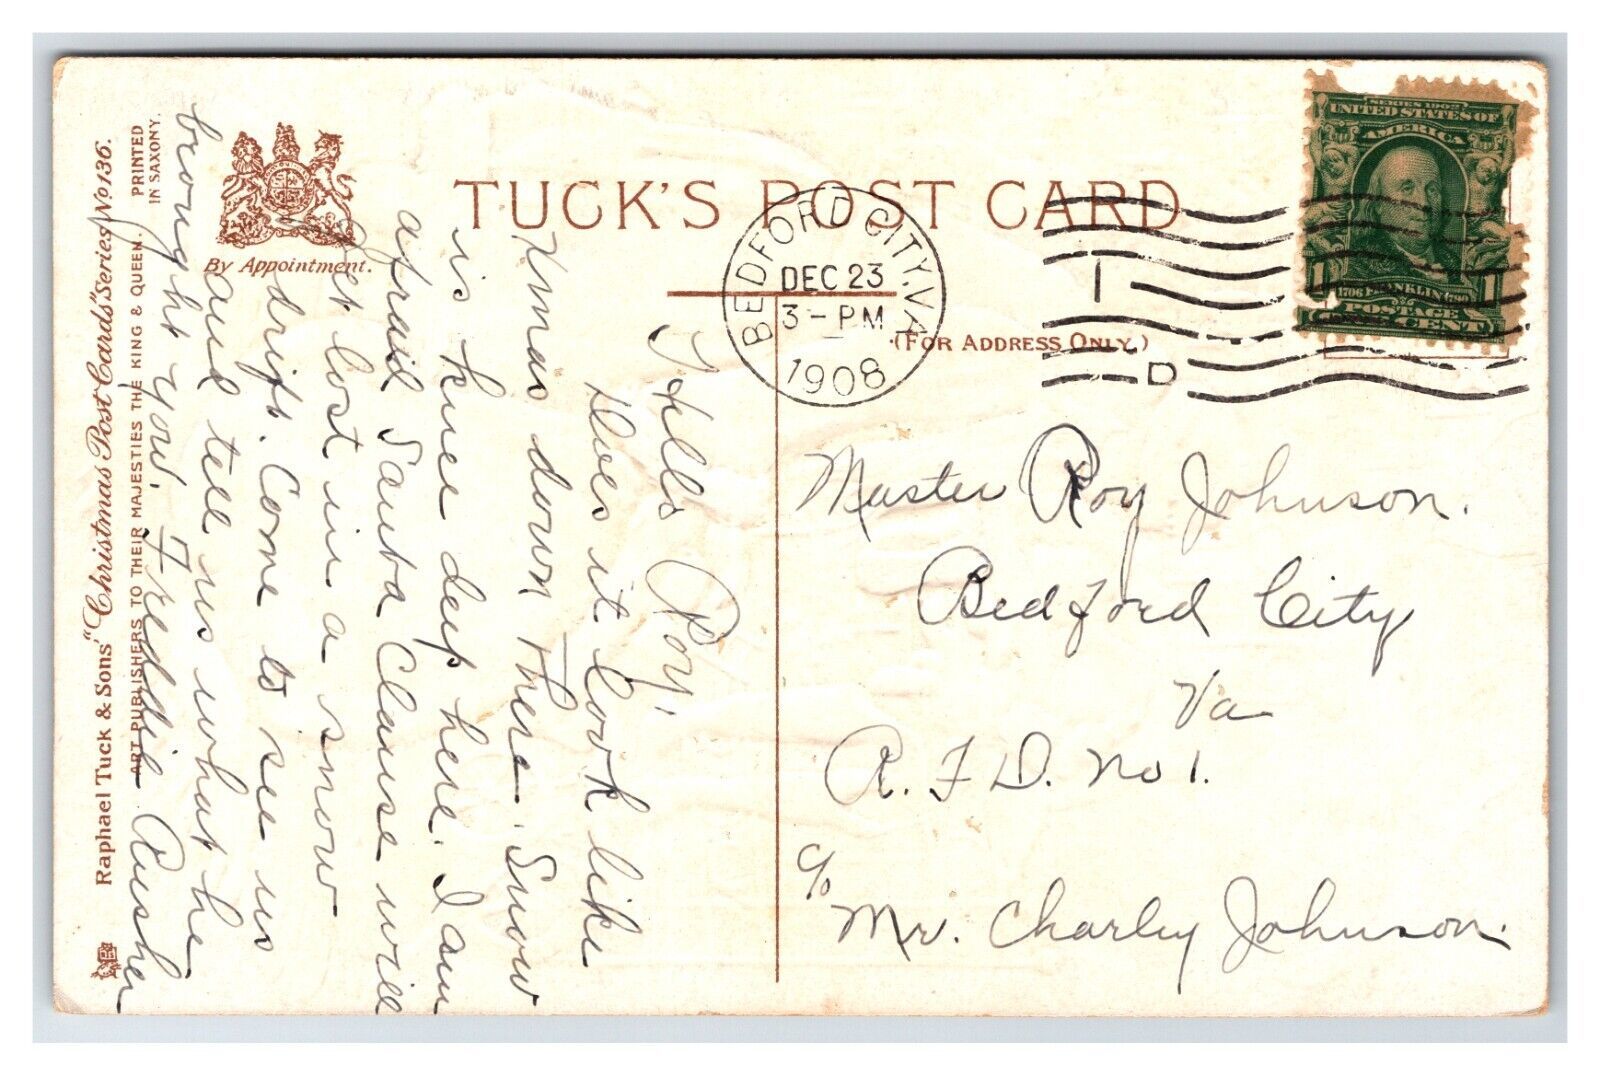 TUCK'S POST CARD
By Appointment.
(FOR ADDRESS ONLY.)
Raphael Tuck & Sons' "Christmas Post Cards" Series No 136.
ART PUBLISHERS TO THEIR MAJESTIES THE KING & QUEEN.
PRINTED
IN SAXONY.
BEDFORD CITY, VA
DEC 23
3-PM
1908
1
D
SERIES 1902
UNITED STATES OF
AMERICA
1706 FRANKLIN 1790
1 1
POSTAGE
CENT
Hello Roy.
Does it look like
Xmas down there. Snow
is knee deep here. I am
afraid Santa Clause will
get lost in a snow
drift. Come to see us
and tell us what he
brought you. Freddie
Master Roy Johnson.
Bedford City
Va
R. F D. No 1.
c/o
Mr. Charley Johnson.